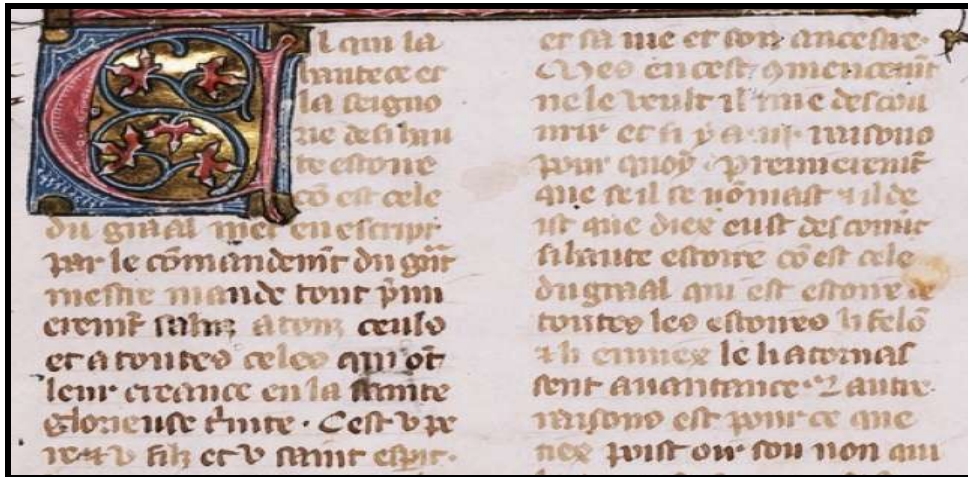 Cl qui la
hautece et
la seigno
rie de si hau
te estoire
cō est cele
du graal met en escript
par le cōmandemēt du gūt
mestre mande tout pͥm
eremēt saluz a touz ceuls
et a toutes celes qui ōt
leur creance en la sainte
glorieuse tͥnite · Cest v pe
re ⁊ v filz et v saint espit ·
et sa uie et son ancestre ·
Mes en cest ꝯmencemēt
ne le veult il mie descou
urir et si y a · iij · raisons
pour quoy · premieremēt
que se il se nōmast ⁊ il de
ist que diex eust descouūt
si haute estoire cō est cele
du graal qui est estoire de
toutes les estoires li felō
⁊ li enuiex le li atornas
sent a uantance · Lautre ·
raisons est pour ce que
tiex puist oir son non qui